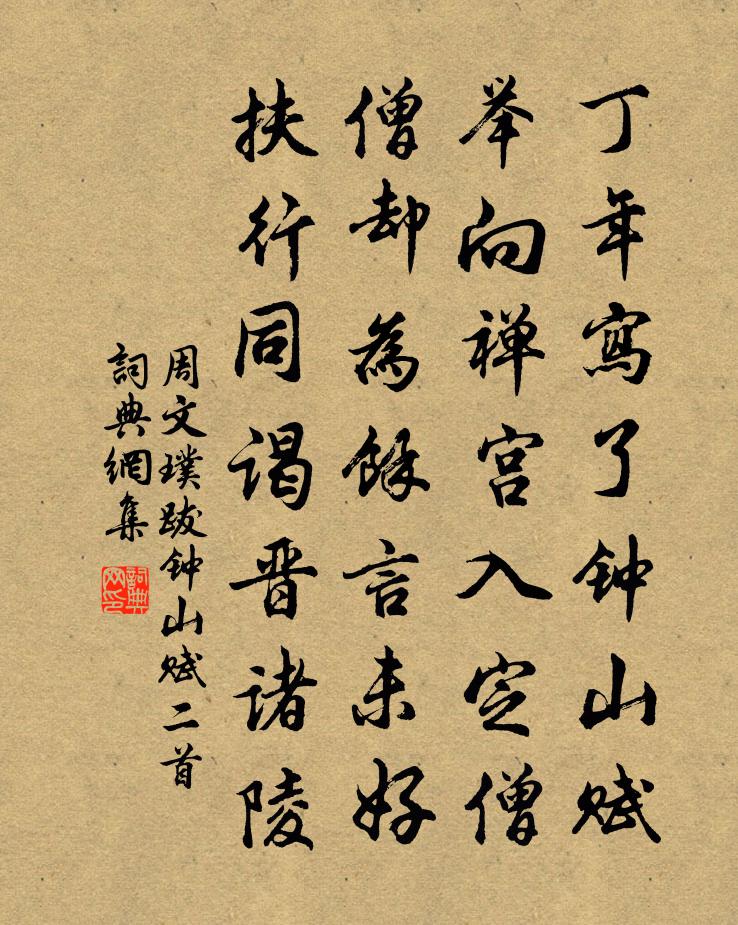 丁年寫了钟山赋
举向禅宫入定僧
僧却為餘言未好
扶行同谒晋诸陵
周文璞跋钟山赋二首
詞典網集
詞典
网印